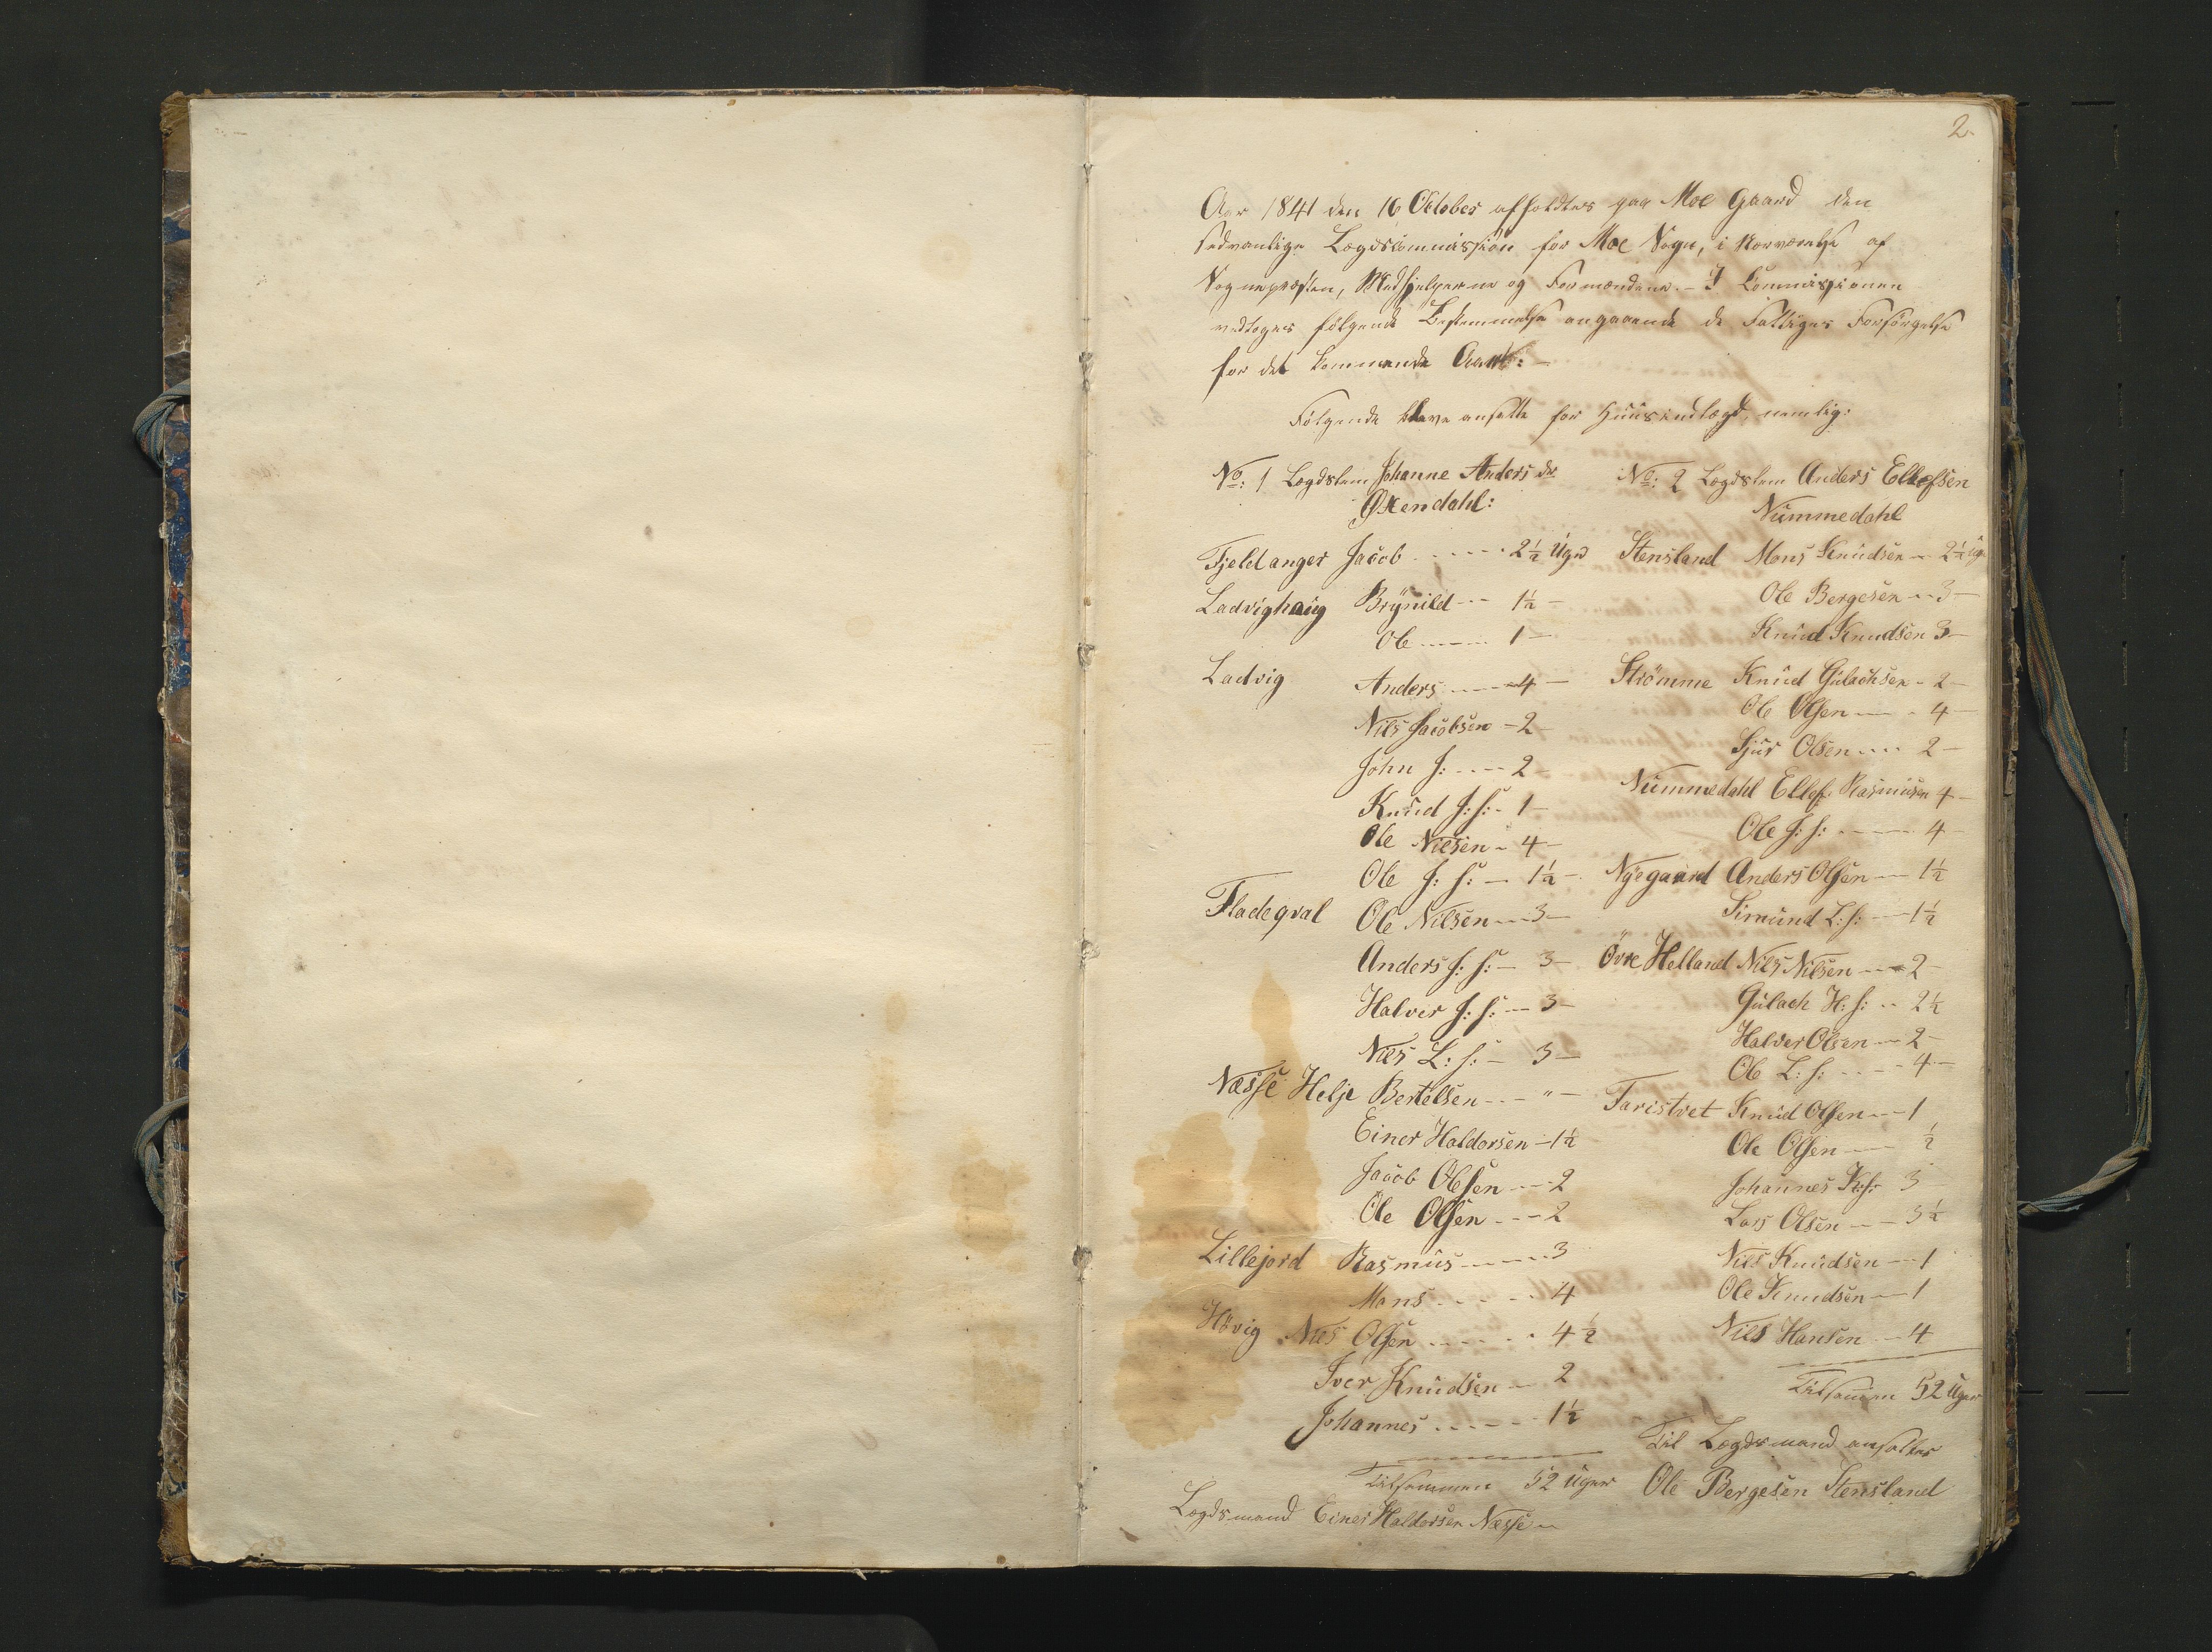 2.
Aar 1841 den 16 October afholdtes paa Moe Gaard den
sedvanlige Lægdscommission for Moe Sogn, i Nærværelse af
Sognepræsten, Medhjelperne og Formændene. - I Commissionen
vedtoges følgende Bestemmelse angaaende de Fattiges Forsørgelse
for det kommende Aar:
Følgende bleve ansatte for Huusindlægd, nemlig:
No: 1 Lægdslem Johanne Andersdr
Øxendahl:
Fjeldanger Jacob 2½ Uger
Ladvighaug Brynild 1½ -
Ole 1 -
Ladvig Anders 4 -
Nils Jacobsen - 2 -
John J: 2 -
Knud J: s: - 1 -
Ole Nilsen - 4 -
Ole J: s: - 1½ -
Fladeqval Ole Nilsen 3 -
Anders J: s: - 3 -
Halver J: s: - 3 -
Nils L: s: - 3 -
Næsse Helje Bertelsen - " -
Einer Haldorsen - 1½
Jacob Olsen - 2
Ole Olsen - 2
Lillejord Rasmus 3
Mons 4
Høvig Nils Olsen 4½
Iver Knudsen - 2
Johannes 1½
Tilsammen 52 Uger
Lægdsmand Einer Haldorsen Næsse
No: 2 Lægdslem Anders Ellefsen
Nummedahl
Stensland Mons Knudsen - 2½ Ug
Ole Bergesen - 3 -
Knud Knudsen 3 -
Strømme Knud Gulachsen - 2 -
Ole Olsen - 4 -
Sjur Olsen 2 -
Nummedahl Ellef Rasmusen 4 -
Ole J: s: 4 -
Nyegaard Anders Olsen - 1½
Simund L: s: - 1½
Øvre Helland Nils Nilsen - 2 -
Gulach H: s: 2½
Halver Olsen - 2 -
Ole L: s: 4 -
Taristvet Knud Olsen - 1
Ole Olsen - ½
Johannes K: s: 3 -
Lars Olsen - 3½
Nils Knudsen - 1
Ole Knudsen - 1
Nils Hansen - 4
Tilsammen 52 Uger
Til Lægdsmand ansattes
Ole Bergesen Stensland